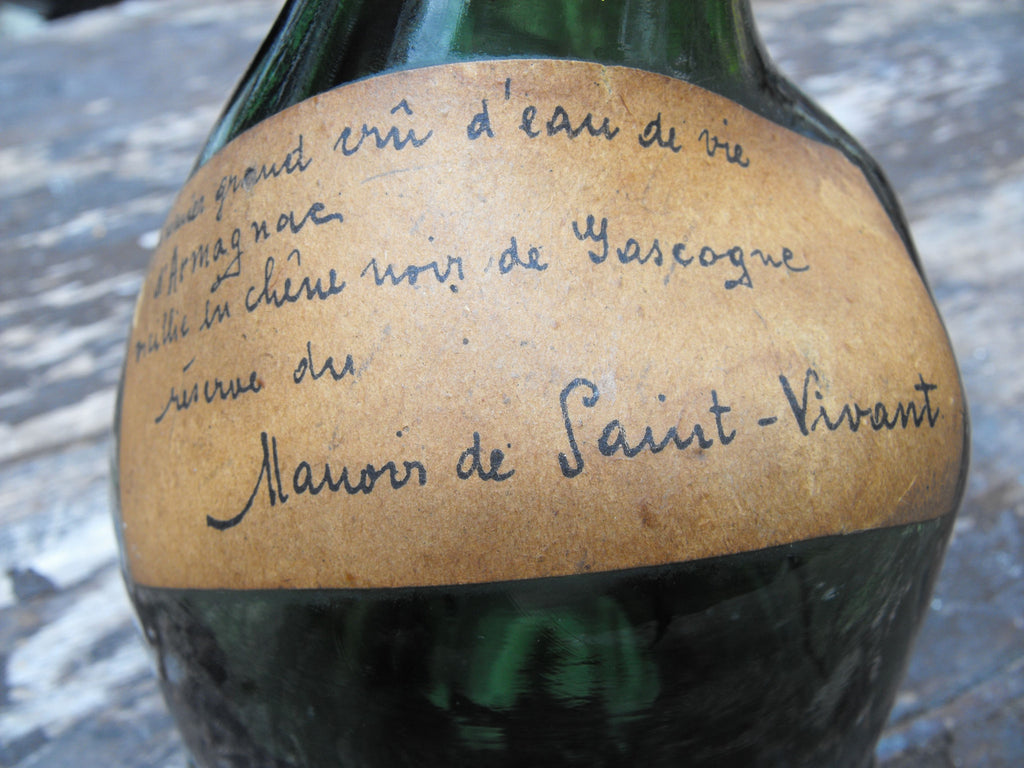 grand crû d'eau de vie
d'Armagnac
vieillie en chêne noir de Gascogne
réserve du
Manoir de Saint-Vivant